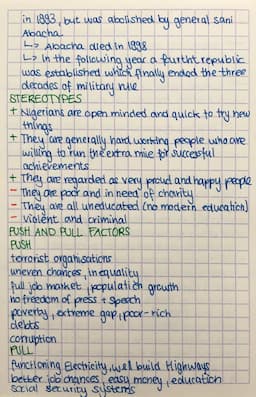 in 1993, but was abolished by general sani
Abacha
↳ Abacha died in 1998
↳ in the following year a fourtht republic
was established which finally ended the three
decades of military rule
STEREOTYPES
+ Nigerians are open minded and quick to try new
things
+ They are generally hard working people who are
willing to run the extra mile for successful
achievements
+ They are regarded as very proud and happy people
- They are poor and in need of charity
- They are all uneducated (no modern education)
- violent and criminal
PUSH AND PULL FACTORS
PUSH
terrorist organisations
uneven chances, inequality
full job market, population growth
no freedom of press + speech
poverty, extreme gap, poor-rich
debts
corruption
PULL
functioning Electricity, well build Highways
better job chances, easy money, education
social security systems